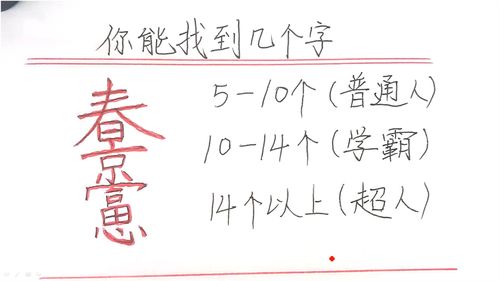 你能找到几个字
5-10个(普通人)
10-14个(学霸)
14个以上(超人)
春
京
富
心